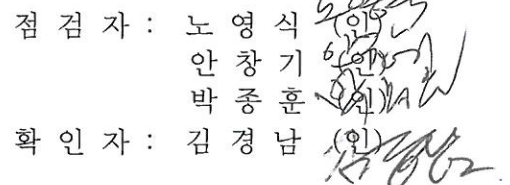 점 검 자 : 노 영 식 (인)
안 창 기 (인)
박 종 훈 (인)
확 인 자 : 김 경 남 (인)